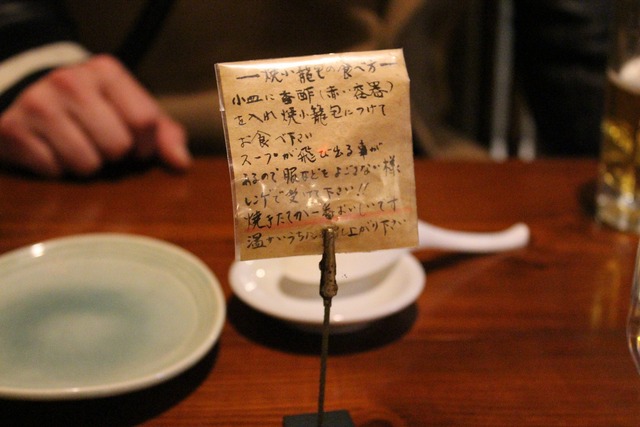 一焼小籠包の食べ方一
小皿に香酢(赤い容器)
を入れ焼小籠包につけて
お食べ下さい
スープが飛び出る事が
あるので服などをよごさない様
レンゲで受けて下さい!!
焼きたてが一番おいしいです
温かいうちにお召し上がり下さい